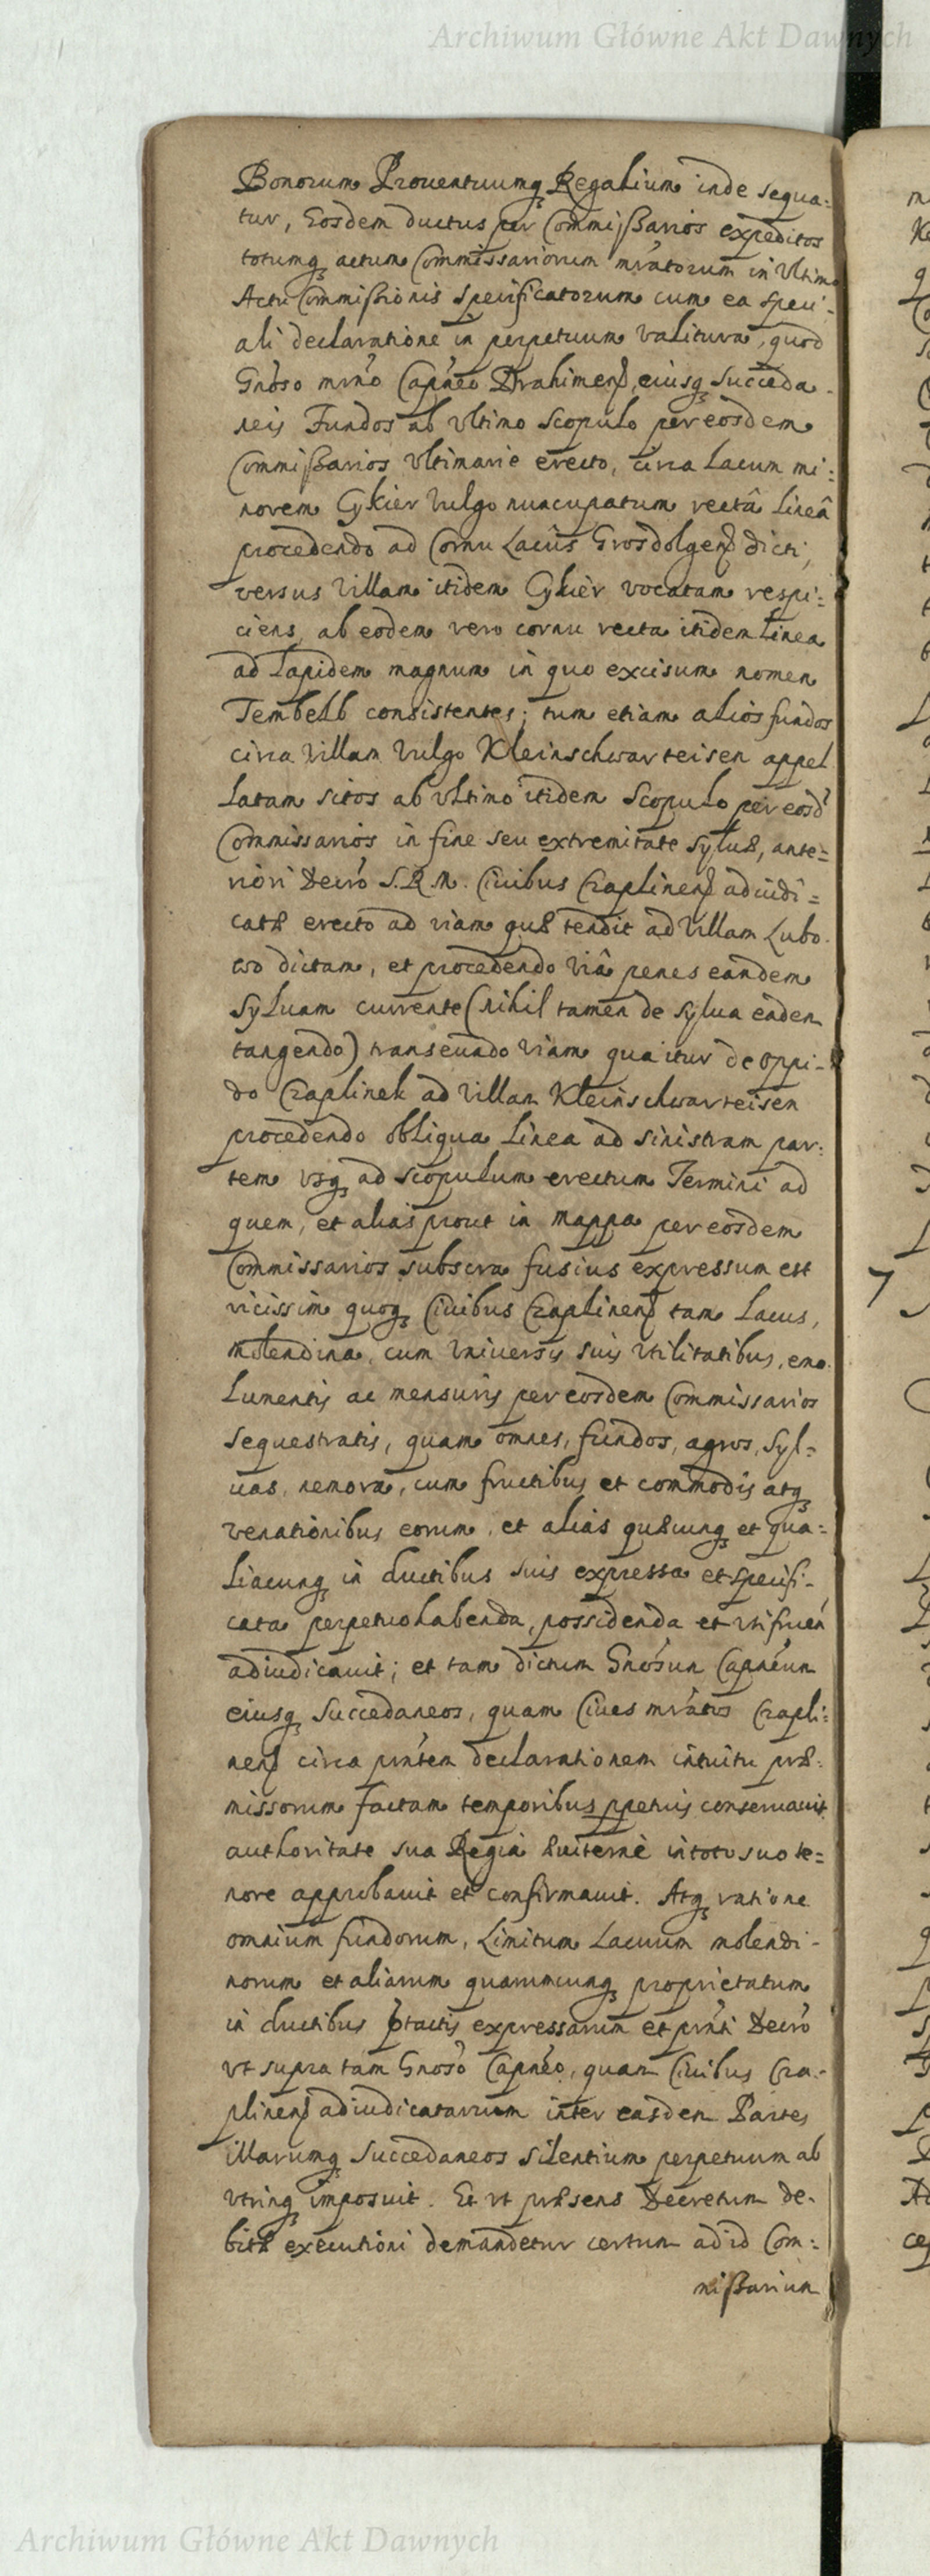 Archiwum Główne Akt Dawnych
Bonorum Prouentuumq Regalium inde sequa:
tur, Eosdem ductus per Commißarios expeditos
totumq actum Commissariorum mratorum in Vltimo
Actu Commißionis specificatorum cum ea speci:
ali declaratione in perpetuum valitura, quod
Gnoso mrno Capneo Drahimen, eiusq succeda:
neis Fundos ab vltimo Scopulo per eosdem
Commißarios vltimarie erecto, circa Lacum mi:
norem Gykier vulgo nuncupatum rectâ lineâ
procedendo ad Cornu Lacûs Grosdolgen dicti,
versus Villam itidem Gykier vocatam respi:
ciens, ab eodem vero cornu recta itidem linea
ad Lapidem magnum in quo excisum nomen
Tembelb consistentes; tum etiam alios fundos
circa Villam vulgo Kleinschwarteisen appel
latam sitos ab vltimo itidem Scopulo per eosd
Commissarios in fine seu extremitate Syluæ, ante=
riori Decro S.R.M. Ciuibus Czaplinen adiudi=
catæ erecto ad viam quæ tendit ad Villam Lubo
wo dictam, et procedendo viâ penes eandem
Syluam currente (nihil tamen de sylua eadem
tangendo) transeundo viam qua itur de oppi:
do Czaplinek ad villam Kleinschwarteisen
procedendo obliqua linea ad sinistram par:
tem vsq ad scopulum erectum Termini ad
quem, et alias prout in mappa per eosdem
Commissarios subscra fusius expressum est
vicissim quoq Ciuibus Czaplinen tam Lacus,
molendina, cum vniuersis suis vtilitatibus, emo
lumentis ac mensuris per eosdem Commissarios
sequestratis, quam omnes, fundos, agros, Syl=
uas, nemora, cum fructibus et commodis atq
venationibus eorum, et alias quæcunq et qua=
liacunq in ductibus suis expressa et specifi:
cata perpetuo habenda, possidenda et vtifruen
adiudicauit; et tam dictum Gnosum Capneum
eiusq Succedaneos, quam Ciues mratos Czapli:
nen circa prntem declarationem intuitu præ:
missorum factam temporibus ppetuis conseruauit
authoritate sua Regia æuiternè in toto suo te=
nore approbauit et confirmauit. Atq ratione
omnium fundorum, Limitum Lacuum molendi=
norum et aliarum quarumcunq proprietatum
in ductibus ptactis expressarum et prnti Decro
vt supra tam Gnoso Capneo, quam Ciuibus Cza:
plinen adiudicatarum inter easdem Partes
illarumq Succedaneos silentium perpetuum ab
vtrinq imposuit. Et vt præsens Decretum de:
bitæ executioni demandetur certum ad id Com:
mißarium
Archiwum Główne Akt Dawnych